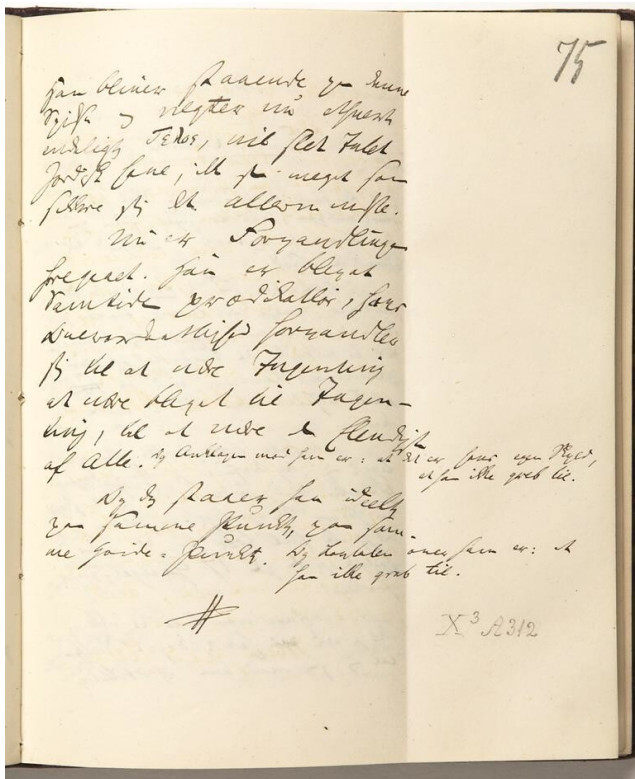 Han bliver staaende paa denne
Spidse og negter nu ethvert
endeligt Τελος, vil slet Intet
Jordisk have, ikke saa meget som
sikkre sig det allermindste.
Nu er Forvandlingen
foregaaet. Han er blevet
Samtiden prædikatløs, hans
forvandler
sig til at være Ingenting
at være blevet til Ingen-
ting, til at være den Elendigste
af Alle. Og Anklagen mod ham er: at det er hans egen Skyld,
at han ikke greb til.
Og dog staaer han ideelt
paa samme Punkt, paa sam-
me Høide-Punkt. Og over ham er: at
han ikke greb til.
75
X³ A 312